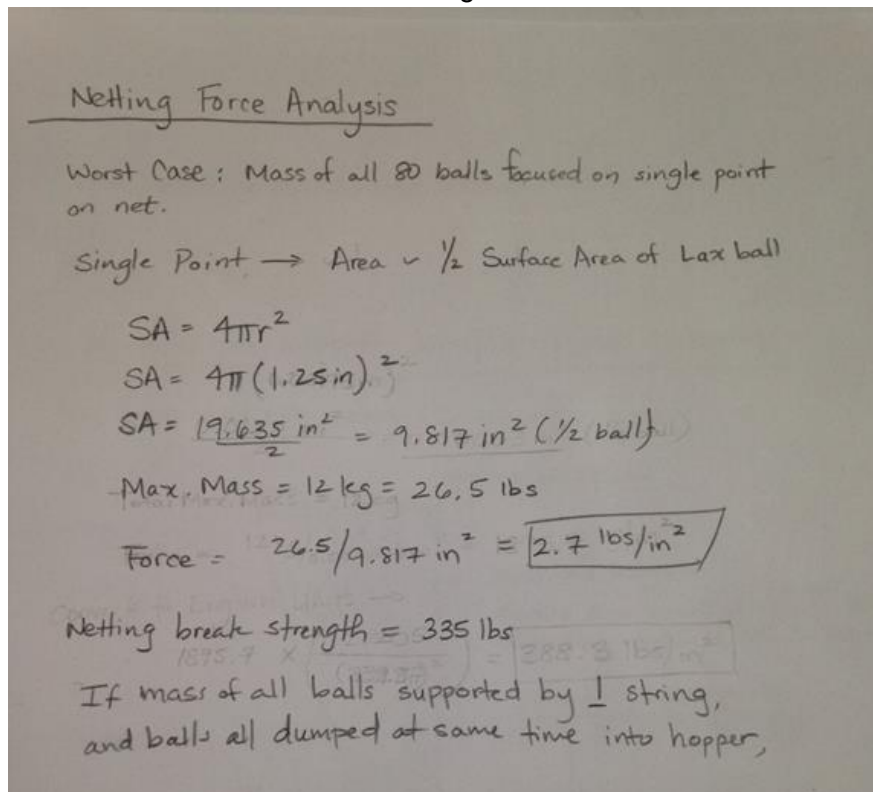 Netting Force Analysis
Worst Case: Mass of all 80 balls focused on single point
on net.
Single Point → Area ~ 1/2 Surface Area of Lax ball
SA = 4πr²
SA = 4π(1.25in)²
SA = 19.635 in²/2 = 9.817 in² (1/2 ball)
Max. Mass = 12 kg = 26.5 lbs
Force = 26.5/9.817 in² = 2.7 lbs/in²
Netting break strength = 335 lbs
If mass of all balls supported by 1 string,
and balls all dumped at same time into hopper,